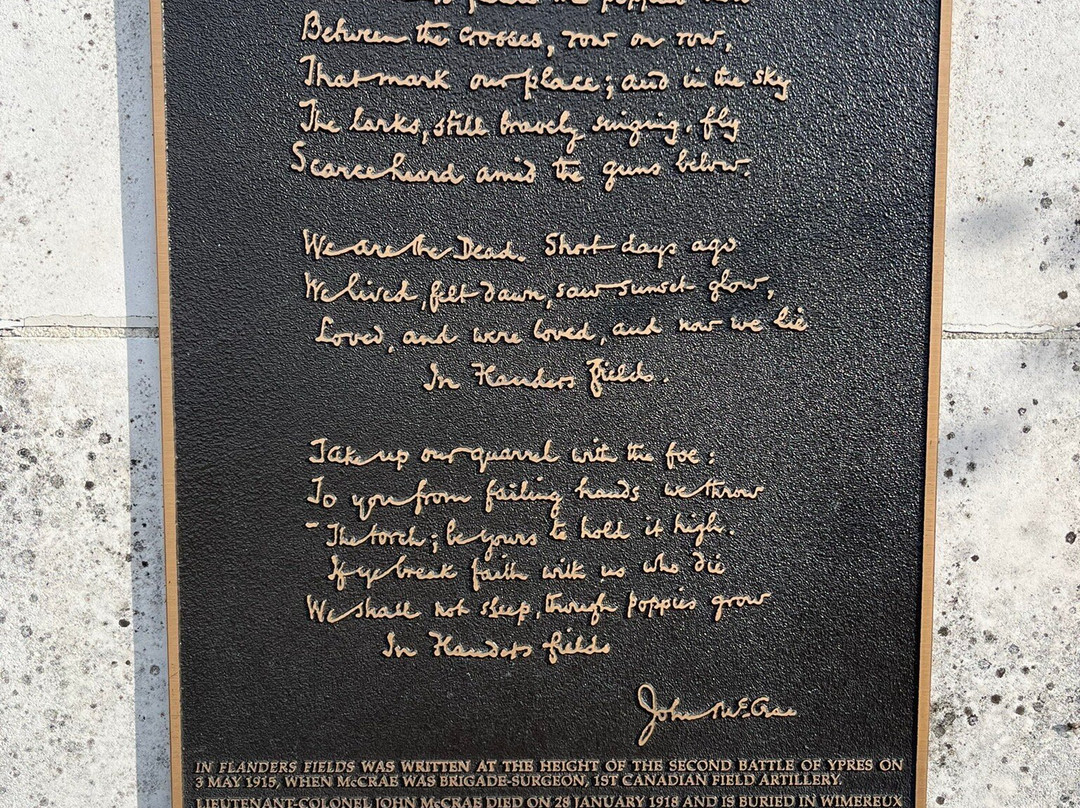 the poppies
Between the crosses, row on row,
That mark our place; and in the sky
The larks, still bravely singing, fly
Scarce heard amid the guns below.
We are the Dead. Short days ago
We lived, felt dawn, saw sunset glow,
Loved, and were loved, and now we lie
In Flanders fields.
Take up our quarrel with the foe:
To you from failing hands we throw
The torch; be yours to hold it high.
If ye break faith with us who die
We shall not sleep, though poppies grow
In Flanders fields
John McCrae
IN FLANDERS FIELDS WAS WRITTEN AT THE HEIGHT OF THE SECOND BATTLE OF YPRES ON
3 MAY 1915, WHEN McCRAE WAS BRIGADE-SURGEON, 1ST CANADIAN FIELD ARTILLERY.
LIEUTENANT-COLONEL JOHN McCRAE DIED ON 28 JANUARY 1918 AND IS BURIED IN WIMEREUX